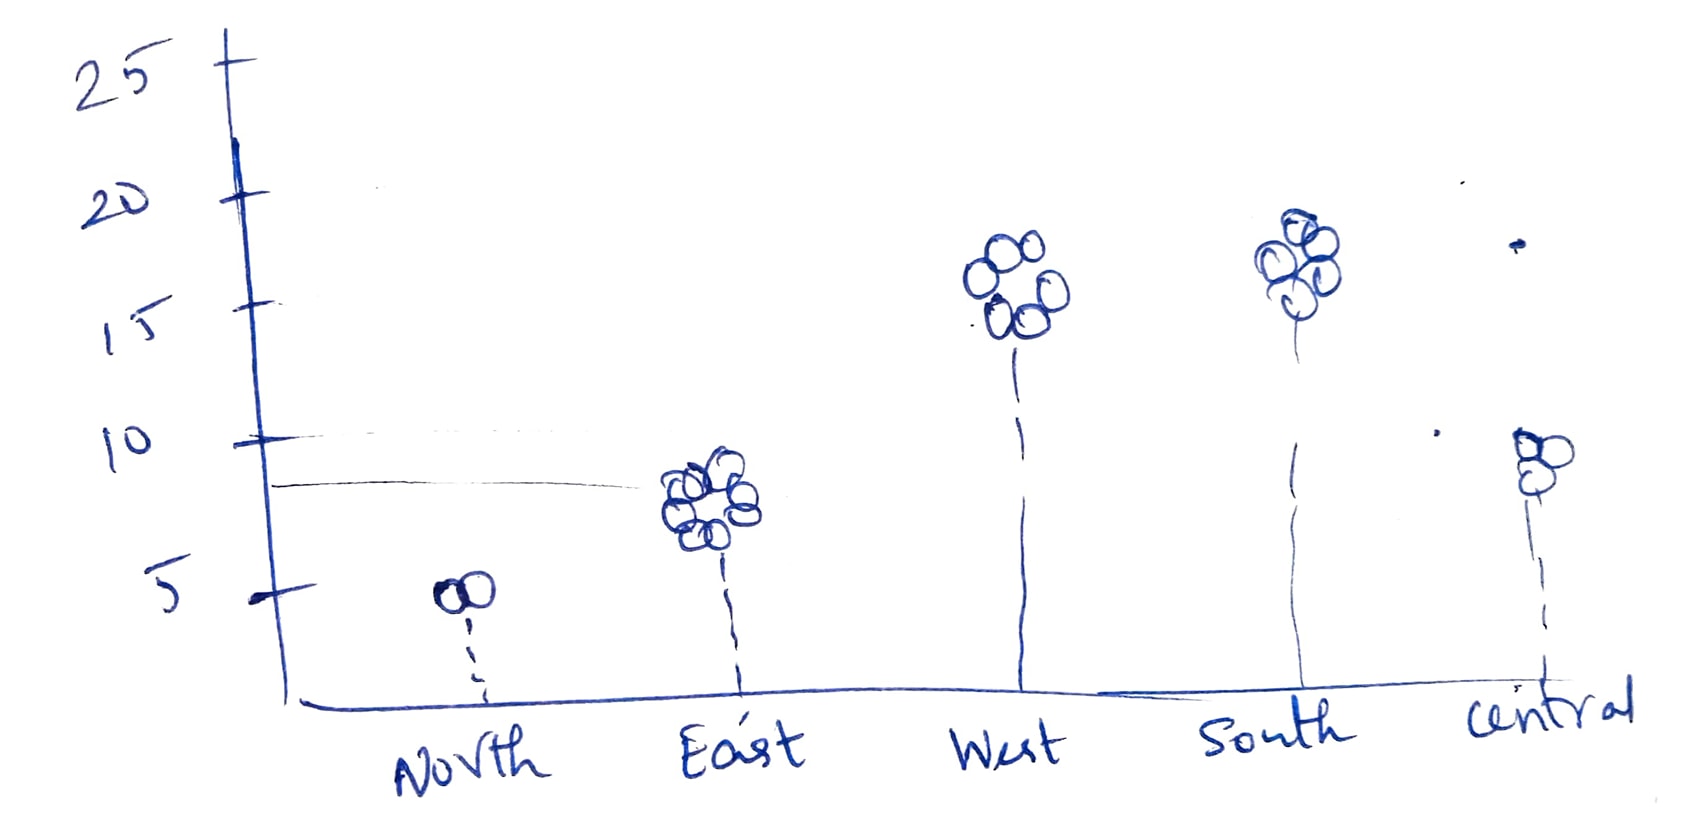 25
20
15
10
5
North East West South central